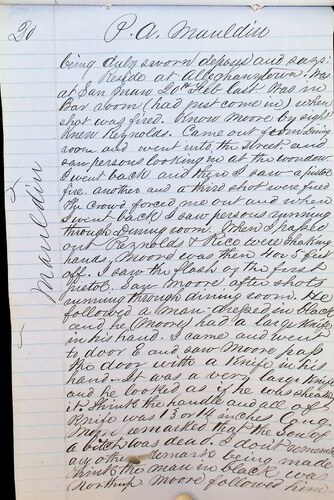 20
P. A. Mauldin
being duly sworn deposes and says:
Reside at Alleghanytown. Was
at San Juan 20th Feb last. Was in
Bar room (had just come in) when
shot was fired. Know Moore by sight
knew Reynolds. Came out from dining
room and went into the street and
saw persons looking in at the window
I went back and then I saw a pistol
fire. another and a third shot were fired
the crowd forced me out and when
I went back I saw persons running
through dining room. When I passed
out Reynolds & Rice were shaking
hands, Moore was then 4 or 5 feet
off. I saw the flash of the first
pistol. Saw Moore after shots
running through dining room. He
followed a man dressed in black
and he (Moore) had a large knife
in his hand. I came and went
to door E and saw Moore pass
the door with a knife in his
hand. It was a very large knife
and he looked as if he was
it. I think the handle and all of
knife was 13 or 14 inches long
Moore remarked that the son of
a bitch was dead. I don't remember
any other remarks being made
I think the man in black was
Northup Moore followed him
Mauldin